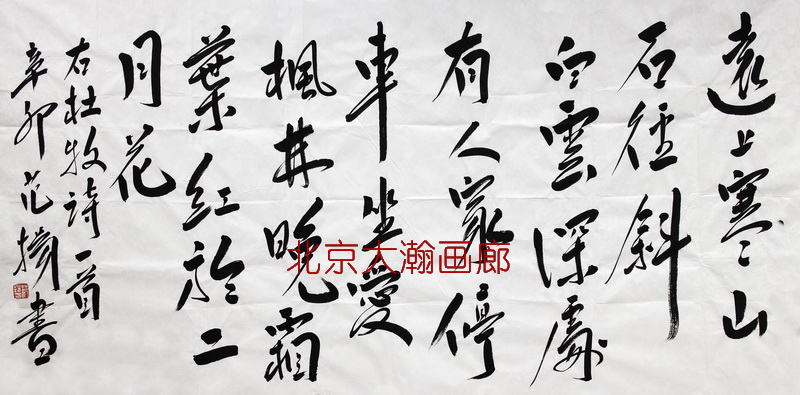 遠上寒山
石徑斜
白雲深處
有人家停
車坐愛
楓林晚霜
葉紅於二
月花
右杜牧詩一首
辛卯范揚書
北京大瀚画廊